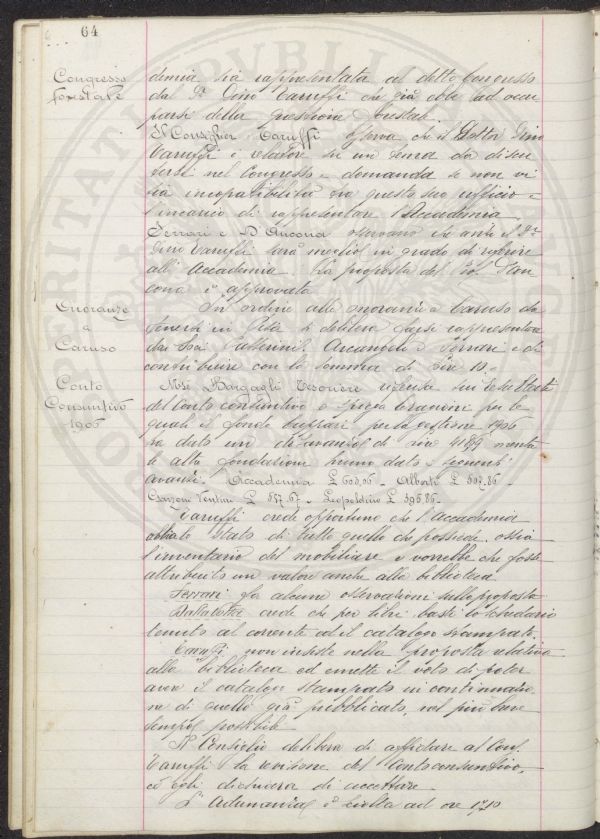 64
Congresso
forestale
demia sia rappresentata al detto Congresso
dal Dr Gino Taruffi che già ebbe ad occu
parsi della questione forestale.
Il Consigliere Taruffi osserva che il Dottor Gino
Taruffi è relatore su un tema da discu
tersi nel Congresso e domanda se non vi
sia incopatibilità tra questo suo ufficio e
l'incarico di rappresentare l'Accademia.
Ferrari e D'Ancona osservano che anzi il Dr
Gino Taruffi sarà meglio in grado di riferire
all'Accademia. La proposta del Prof. D'An
cona è approvata.
Onoranze
a
Caruso
In ordine alle onoranze a Caruso da
tenersi in Pisa si delibera farsi rappresentare
dai Soci Passerini, Arcangeli e Ferrari e di
contribuire con la somma di Lire 10.-
Conto
Consuntivo
1906
Msi Bargagli Tesoriere riferisce sui resultati
del Conto consuntivo e spiega le ragioni per le
quali il fondo per la gestione 1906
ha dato un disavanzo di Lire 4189 mentre
le altre fondazioni hanno dato i seguenti
avanzi: Accademia L 608,06 - Alberti L 502.86 -
Ventura L 557.67 - Leopoldino L 396.86 -
Taruffi crede opportuno che l'Accademia
abbia lo stato di tutto quello che possiede, ossia
l'inventario del mobiliare e vorrebbe che fosse
attribuito un valore anche alla biblioteca
Ferrari fa alcune osservazioni sulla proposta
crede che per libri basti lo schedario
tenuto al corrente ed il catalogo stampato.
Taruffi non insiste nella proposta relativa
alla biblioteca ed emette il voto di poter
avere il catalogo stampato in continuazio
ne di quello già pubblicato, nel più breve
tempo possibile
Il Consiglio delibera di affidare al Cons.
Taruffi la revisione del Conto consuntivo,
ed egli dichiara di accettare.
L'adunanza è sciolta ad ore 17,10